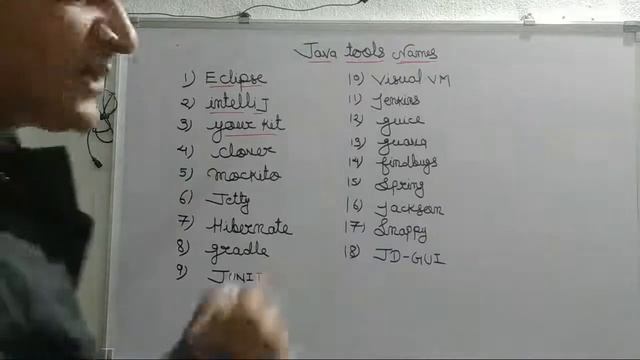 Java tools Names
1) Eclipse
2) intelliJ
3) your kit
4) clover
5) mockito
6) Jetty
7) Hibernate
8) gradle
9) JUNIT
10) Visual VM
11) Jenkins
12) guice
13) guava
14) findbugs
15) Spring
16) Jackson
17) Snappy
18) JD-GUI